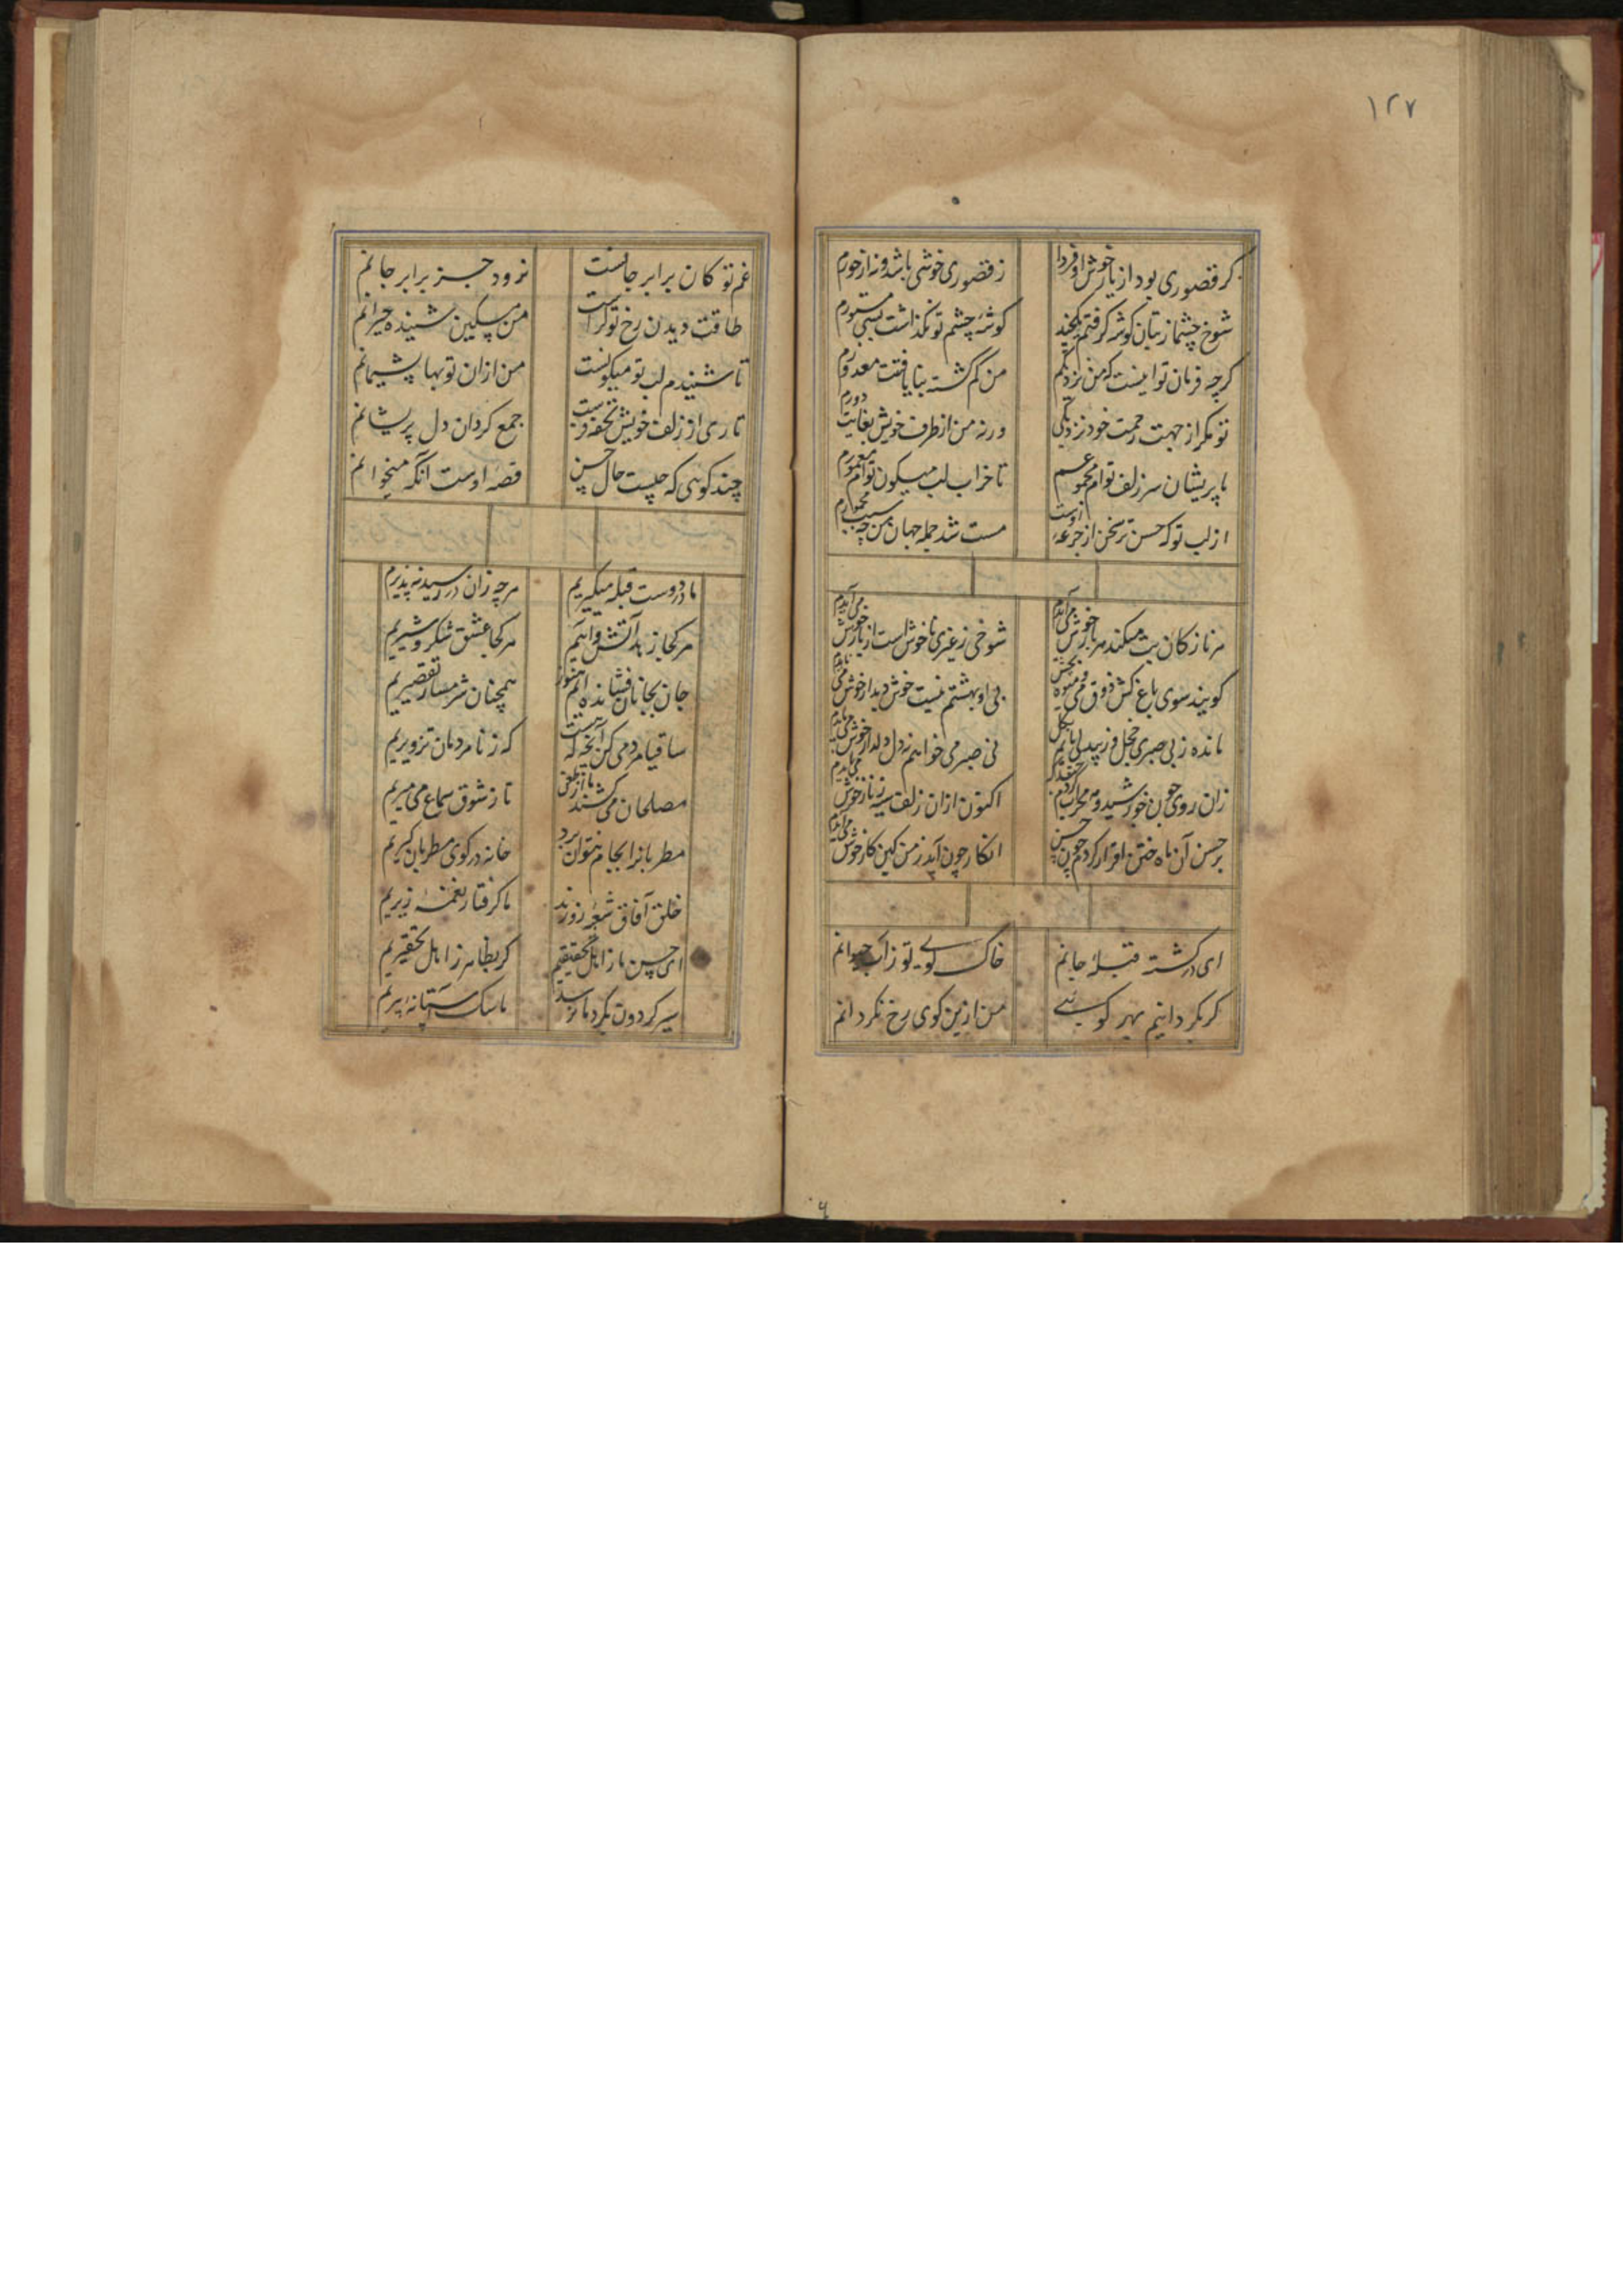 ۱۲۷
گر قصوری بود از یار خوش او فردا ز قصوری خوشی باشد و نه از حورم
شوخ چشما ز بتان گوشه گرفتم یکچند گوشهٔ چشم تو نگذاشت بسی مستورم
گرچه فرمان تو اینست که من نزدیکم من گم گشته بنا یافتنت معذورم
تو مگر از جهت رحمت خود نزدیکی ورنه من از طرف خویش بغایت دورم
با پریشان سر زلف توام مجموعم تا خراب لب میگون توام معمورم
از لب تو که حسن تر سخن از جرعهٔ اوست مست شد جمله جهان من چه سبب مخمورم
هر ناز کان بت میکند هر بار خوش می‌آیدم شوخی ز غیری ناخوش است از یار خوش می‌آیدم
گویند سوی باغ کش ذوقی و میوه بی او بهشتم نیست خوش دیدار خوش می‌بایدم
مانده ز بی صبری خجل وز بیدلی پایم بگل نی صبر می‌خواهم نه دل دلدار خوش می‌بایدم
زان روی چون خورشید و مه محراب کردم اکنون ازان زلف سیه زنار خوش می‌بایدم
بر حسن آن ماه ختن اقرار کردم چون حسن انکار چون آید ز من کین کار خوش می‌آیدم
ای در گشته قبلهٔ جانم خاک کوی تو ز آب حیوانم
گر بگردانیم بهر کوئی من ازین کوی رخ نگردانم
غم تو کان برابر جانست نرود جز برابر جانم
طاقت دیدن رخ تو کراست من مسکین شنیده حیرانم
تا شنیدم لب تو میگونست من ازان توبها پشیمانم
تاری از زلف خویش تحفه فرست جمع گردان دل پریشانم
چند گوئی که چیست حال حسن قصه اوست آنگه میخوانم
ما در دوست قبله میگیریم هرچه زان در رسید بپذیریم
هر کجا زهد آتش و آبیم هر کجا عشق شکر و شیریم
جان بجانان فشانده‌ایم هنوز همچنان شرمسار تقصیریم
ساقیا مردمی کن آنچه که هست که ز نامردمان تزویریم
مصلحان می‌کشند ما را تا ز شوق سماع می میریم
مطربانرا بجام نتوان برد خانه در کوی مطربان گیریم
خلق آفاق شعر زورزند ما گرفتار نغمهٔ زیریم
ای حسن ما ز اهل تحقیقیم گر بظاهر ز اهل تحقیریم
سیر گردون بگرد ما نرسد ما سگ آستانهٔ پیریم